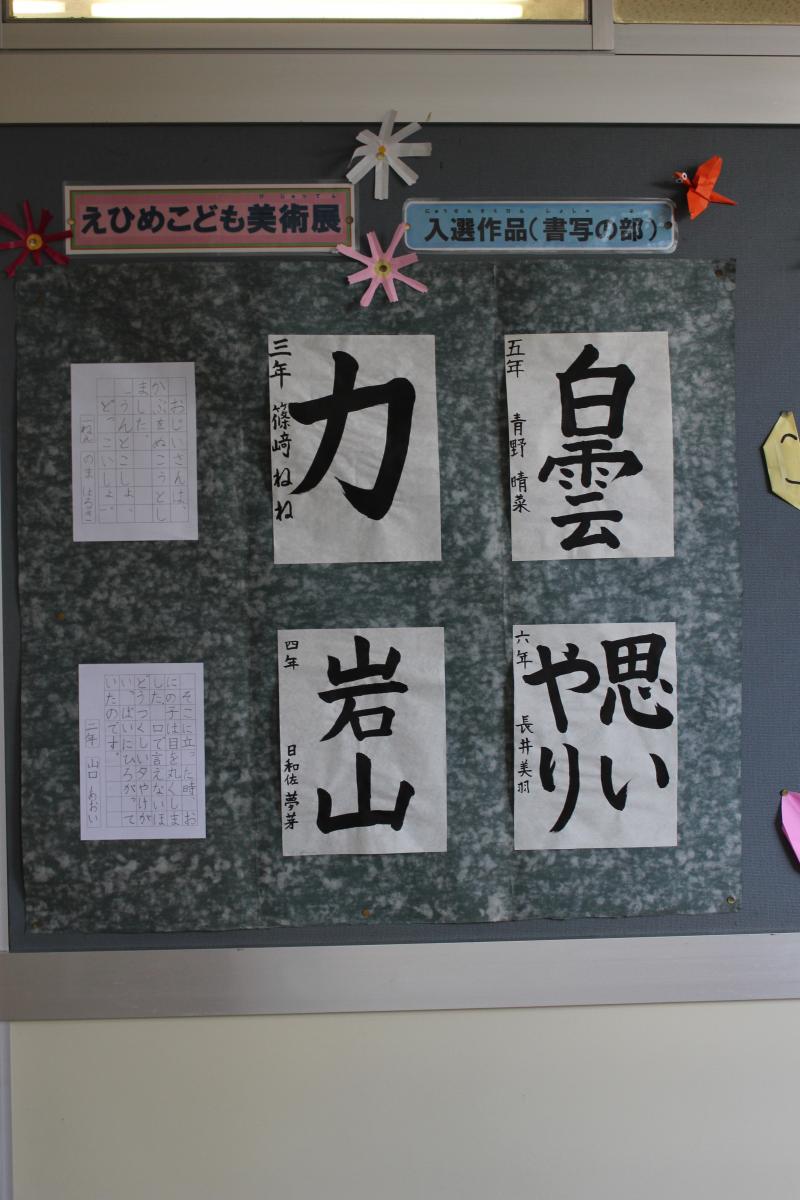 えひめこども美術展
入選作品（書写の部）
おじいさんは、
かぶをぬこうとし
ました。
「うんとこしょ、
どっこいしょ。」
三年 篠﨑 ねね
力
五年 青野 晴菜
白雲
そこに立った時、お
にの子は目を丸くしま
した。口で言えないほ
どうつくしい夕やけが
いっぱいにひろがって
いたのです。
二年 山口 あおい
四年 日和佐 夢芽
岩山
六年 長井美羽
思い
やり